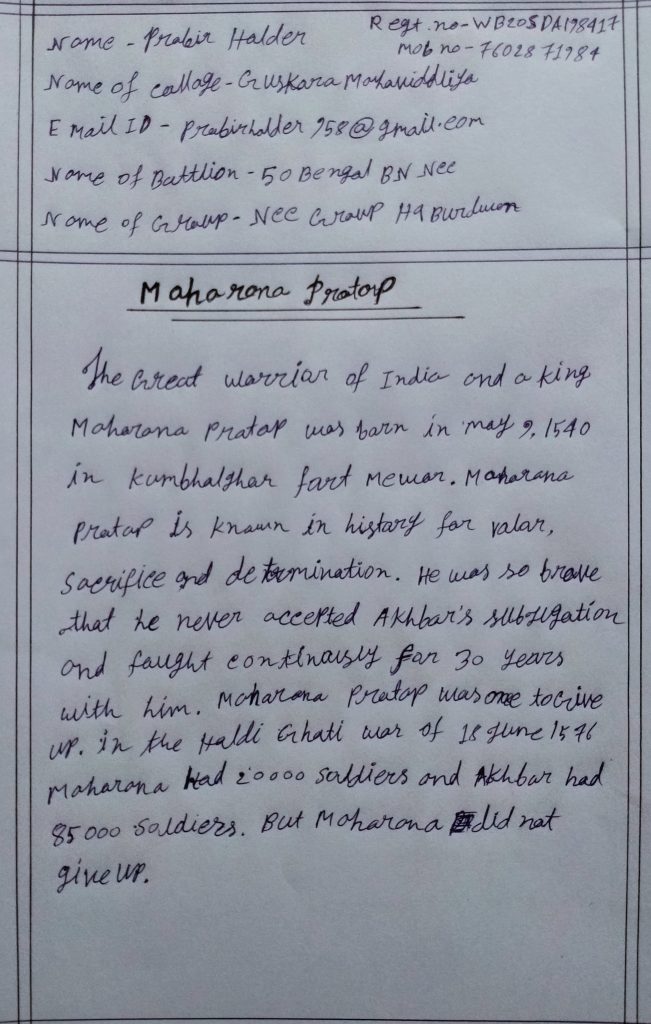 Name - Prabir Halder
Regt. no - WB20SDA198417
Mob no - 7602871984
Name of Callage - Guskara Mahaviddliya
E Mail ID - Prabirhalder958@gmail.com
Name of Battlion - 50 Bengal BN Ncc
Name of Group - Ncc Group HQ Burdwan
Maharana Pratap
The Great warriar of India and a king
Maharana Pratap was barn in may 9, 1540
in kumbhalghar fart Mewar. Maharana
Pratap is knawn in histary far valar,
Sacrifice and determination. He was so brave
that he never accepted Akhbar's subjugation
and faught continausly far 30 years
with him. Maharana Pratap was one to Give
up. in the Haldi Ghati war of 18 June 1576
Maharana Had 20000 Saldiers and Akhbar had
85000 Saldiers. But Maharana did nat
give up.